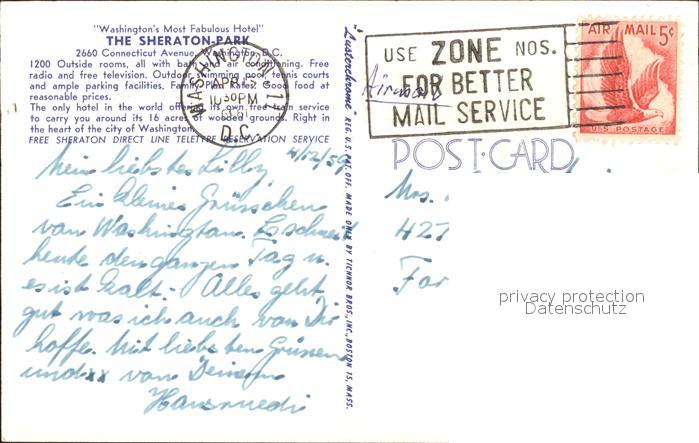 "Washington's Most Fabulous Hotel"
THE SHERATON-PARK
2660 Connecticut Avenue, Washington, D.C.
1200 Outside rooms, all with bath and air conditioning. Free
radio and free television. Outdoor swimming pool, tennis courts
and ample parking facilities. Family Plan Rates. Good food at
reasonable prices.
The only hotel in the world offering its own free train service
to carry you around its 16 acres of wooded grounds. Right in
the heart of the city of Washington.
FREE SHERATON DIRECT LINE TELETYPE RESERVATION SERVICE
WASHINGTON
APR 12
10 30PM
D.C.
USE ZONE NOS.
FOR BETTER
MAIL SERVICE
Airmail
AIR MAIL 5¢
U.S. POSTAGE
POST CARD
"Lusterchrome" REG. U.S. PAT. OFF. MADE ONLY BY TICHNOR BROS., INC., BOSTON 15, MASS.
Mein liebstes Lilly,
Ein kleines Grüsschen
von Washington. Es schneit
heute den ganzen Tag u.
es ist kalt. Alles geht
gut was ich auch von Dir
hoffe. Mit liebsten Grüssen
und xx von Deinem
Hansruedi
Mrs.
427
For
privacy protection
Datenschutz